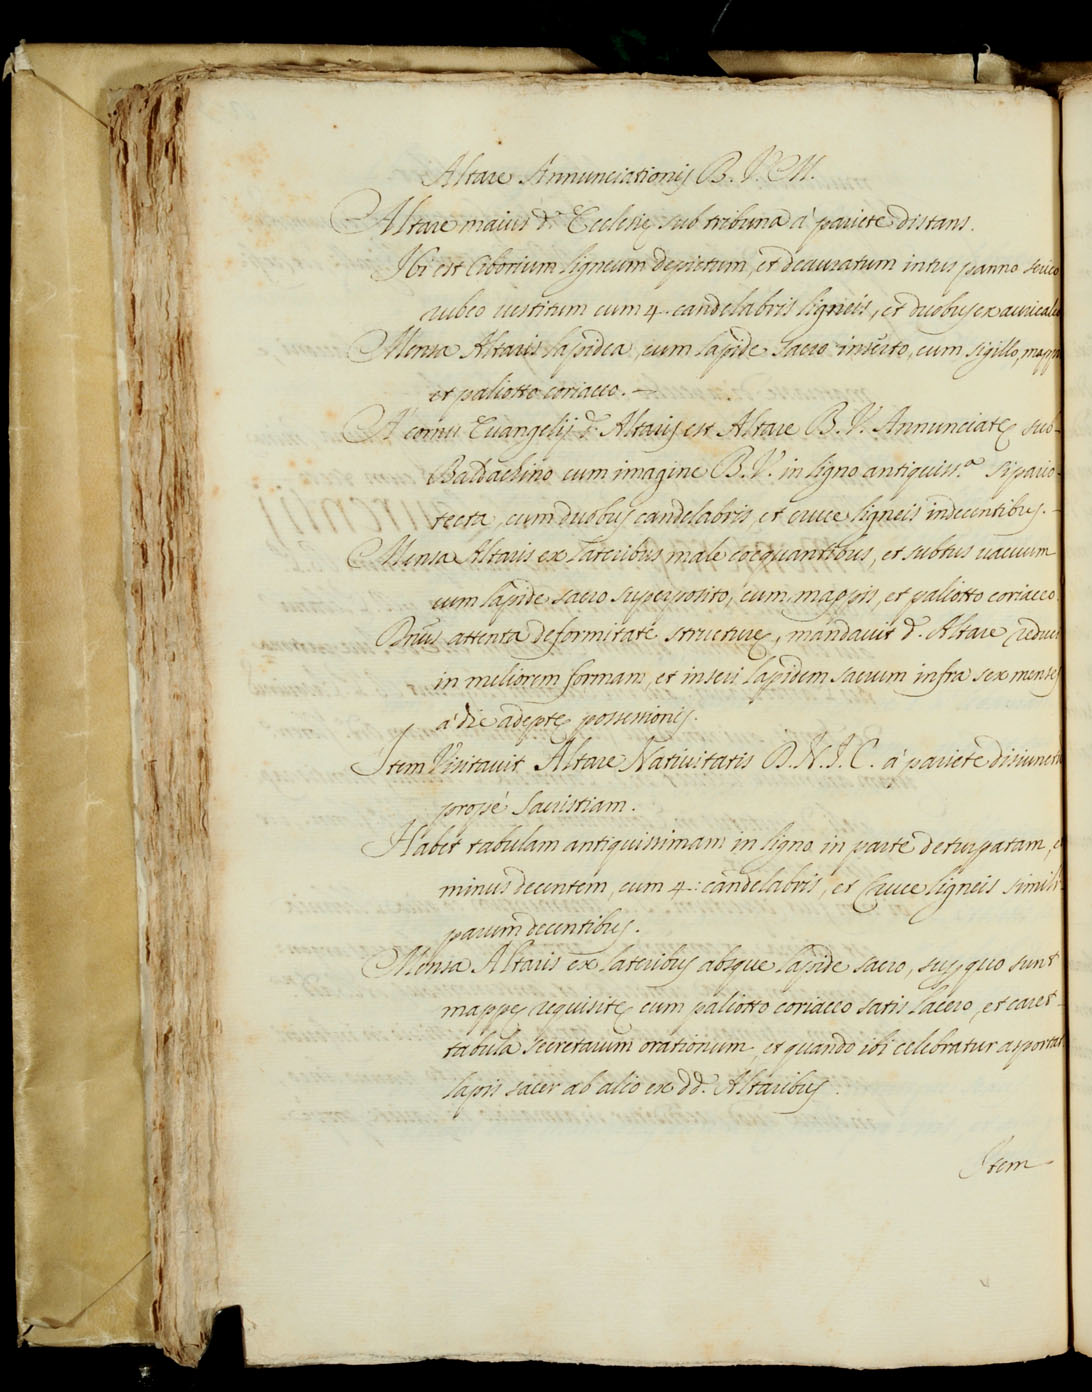 Altare Annunciationis B. V. M.
Altare maius d.ę Ecclesię sub tribuna à pariete distans.
Ibi est Ciborium ligneum depictum, et deauratum intus panno serico
rubeo vestitum cum 4. candelabris ligneis, et duobus ex auricalco
Mensa Altaris lapidea, cum lapide sacro inserto, cum sigillo, mappis
et paliotto coriaceo.
A cornu Euangelij d. Altaris est Altare B. V. Annunciatę sub
Baldachino cum imagine B. V. in ligno antiquiss.ª sipario
tecta, cum duobus candelabris, et cruce ligneis indecentibus.
Mensa Altaris ex lateribus male coequantibus, et subtus vacuum
cum lapide sacro superposito, cum mappis, et paliotto coriaceo
Dnus attenta deformitate structurę, mandavit d. Altare reduci
in meliorem formam, et inseri lapidem sacrum infra sex menses
à die adeptę possessionis.
Item Visitavit Altare Nativitatis D. N. J. C. à pariete disiunctu
propè Sacristiam.
Habet tabulam antiquissimam in ligno in parte deturpatam, e
minus decentem, cum 4: candelabris, et Cruce ligneis simili
parum decentibus.
Mensa Altaris ex lateribus absque lapide sacro, sup quo sunt
mappę requisitę cum paliotto coriaceo satis lacero, et caret
tabula secretarum orationum, et quando ibi celebratur asportat
lapis sacer ab alio ex dd. Altaribus.
Item